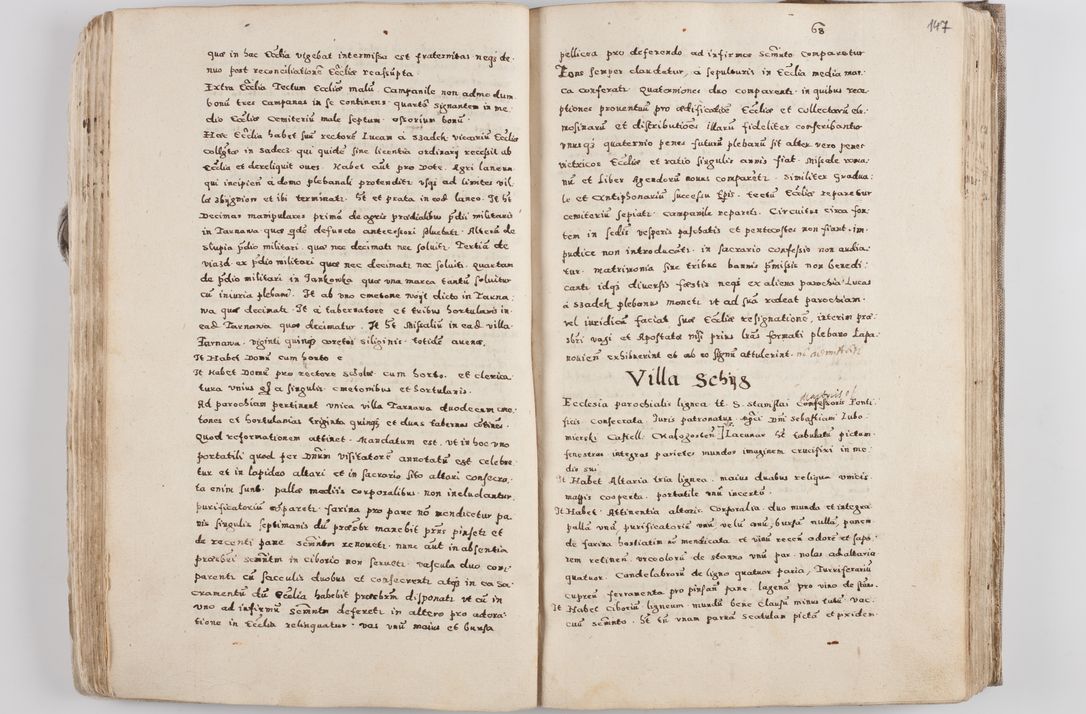 quæ in hac Ecclia vigebat intermissa est fraternitas neqz de-
nuo post reconciliatione Ecclæ reassupta
Extra Eccliā Tectum Eccliæ malū. Campanile non admodum
bonū tres campanas in se continens quartā signantem in me
dio Eccliæ Cemiteriū male septum ossorium bonū
Hæc Ecclia habet suū rectorē Lucam a Szadek vicariū Eccliæ
collgtæ in Sadecz qui quidē sine licentia ordinarij recessit ab
Ecclia et dereliquit oves. Habet aūt pro Dote. Agri laneum
qui incipien a domo plebanali protenditr vsqz ad limites vil
læ et ibi terminatr. It et prata in eod laneo. It ht
Decimas manipulares primā de agris prædialibus pdii militaris
in Tarnava quæ defuncto antecessori Alterā de
Slupia pdio militari quæ nec decimatr nec solvitr. Tertiā de
ex pdio militari quæ nec decimatr nec solvitr. quartam
de pdio militari in Jankowka quæ vna marca tantū solvitur
cū iniuria plebani. It ab vno cmetone dicto in Tarna
va quæ decimatr. It a tabernatore et tribus hortulanis in
ead Tarnava quæ decimatur. It ht Missaliū in ead villa
Tarnava viginti quinqz coretos siliginis totidē avenæ.
It Habet Domū cum horto e
It Habet Domū pro rectore scholæ cum horto. et clerica
tura vnius gſ a singulis cmetonibus et hortulanis.
Ad parochiam pertinent vnica villa Tarnava duodecem cme
tones et hortulanias triginta quinqz et duas tabernas cōtinēs.
Quod reformationem attinet. Mandatum est, vt in hoc vno
portatili quod per Dnum visitatorē annotatū est celebre
tur et in lapideo altari et in sacrario sito altari consecra
ta enim sunt. pallæ mediis corporalibus non includantur.
purificatoriū cōparetr. farina pro pane nō mendicetur pa
nis singulis septimanis dū præsbr manebit pinsetr et
de recenti pane renovetr. nunc aūt in absentia
præsbri in ciborio non servetr. vascula duo com
parentr cū sacculis duobus et consecrentr atqz in ea Sa
cramentū dū Ecclia habebit præsbrm disponatr vt cū in
vno ad infirmū deferetr in altero pro adora
tione in Ecclia relinquatur. vas vnū maius et bursa
68
147
pellicea pro deferendo ad infirmos comparetur
Fons semper claudatur, a sepulturis in Ecclia media mar
ca conferatr. Quaterniones duo comparentr in quibus rece
ptiones proventuū pro ædificatiōe Eccliæ et collectarū ele
mosinarū et distributiōes illarū fideliter conscribantr
vnusqz quaternio penes futurū plebanū sit alter vero penes
vietricos Eccliæ et ratio singulis annis fiat. Missale roma
nū et Liber Agendorū novus comparetr. similiter Gradua
le et Antiphonariū successu tpis. tectū Eccliæ reparetur
cemiteriū sepiatr campanile reparetr. Circuitus circa fon
tem in sedis vesperis paschatis et pentecostes non fiant. im
pudicæ non introducātr. in sacrario confessio non audia
tur. matrimonia sine tribus bannis pmissis non benedi
cantr idqz diversis festis neqz ex aliena parochia Lucas
a Szadek plebanus monetr vt ad suā redeat parochiam
vel iuridicā faciat suæ Eccliæ resignationē, interim præ
sbri vagi et Apostatæ nisi prius lras formatas plebano Lapa
noviens exhibuerint et ab eo signū attulerint. nō admittātr
Villa Schijg
Ecclesia parochialis lignea tt. S. stanislai Confessoris Ponti
Martiris!
ficis consecrata. Juris patronatus Dni Sebastiani Lubo
mierski Castell. Malogosten. Lacunar ht tabulatū pictum
fenestras integras parietes mundos imaginem crucifixi in me
dio sui
It Habet Altaria tria lignea. maius duabus reliqua vnicis
mappis cooperta. portatile vnū incertū.
It Habet. Attinentia altaris. Corporalia duo munda et integra
palla vna, purificatoriū vnū, velū vnū, bursa nulla, panem
de farina hostiatim nō mendicata et vinū recen adorē et sapo
rem retinen. vrceolorū de stanno vnū par. nolas ad altaria
quatuor. Candelabrorū de ligno quatuor paria, Turriferariū
cupreū ferramenta pro pinsen pane. lagenā pro vino de stāno.
It Habet Ciboriū ligneum mundū bene clausū minus tutū vac
cuū scmnto. It tū vnam parvā scatulam pictā et pixiden